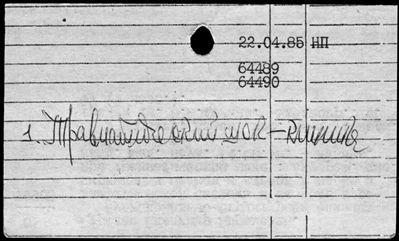 22.04.85 НП
64489
64490
1. Травматический шок - клиника